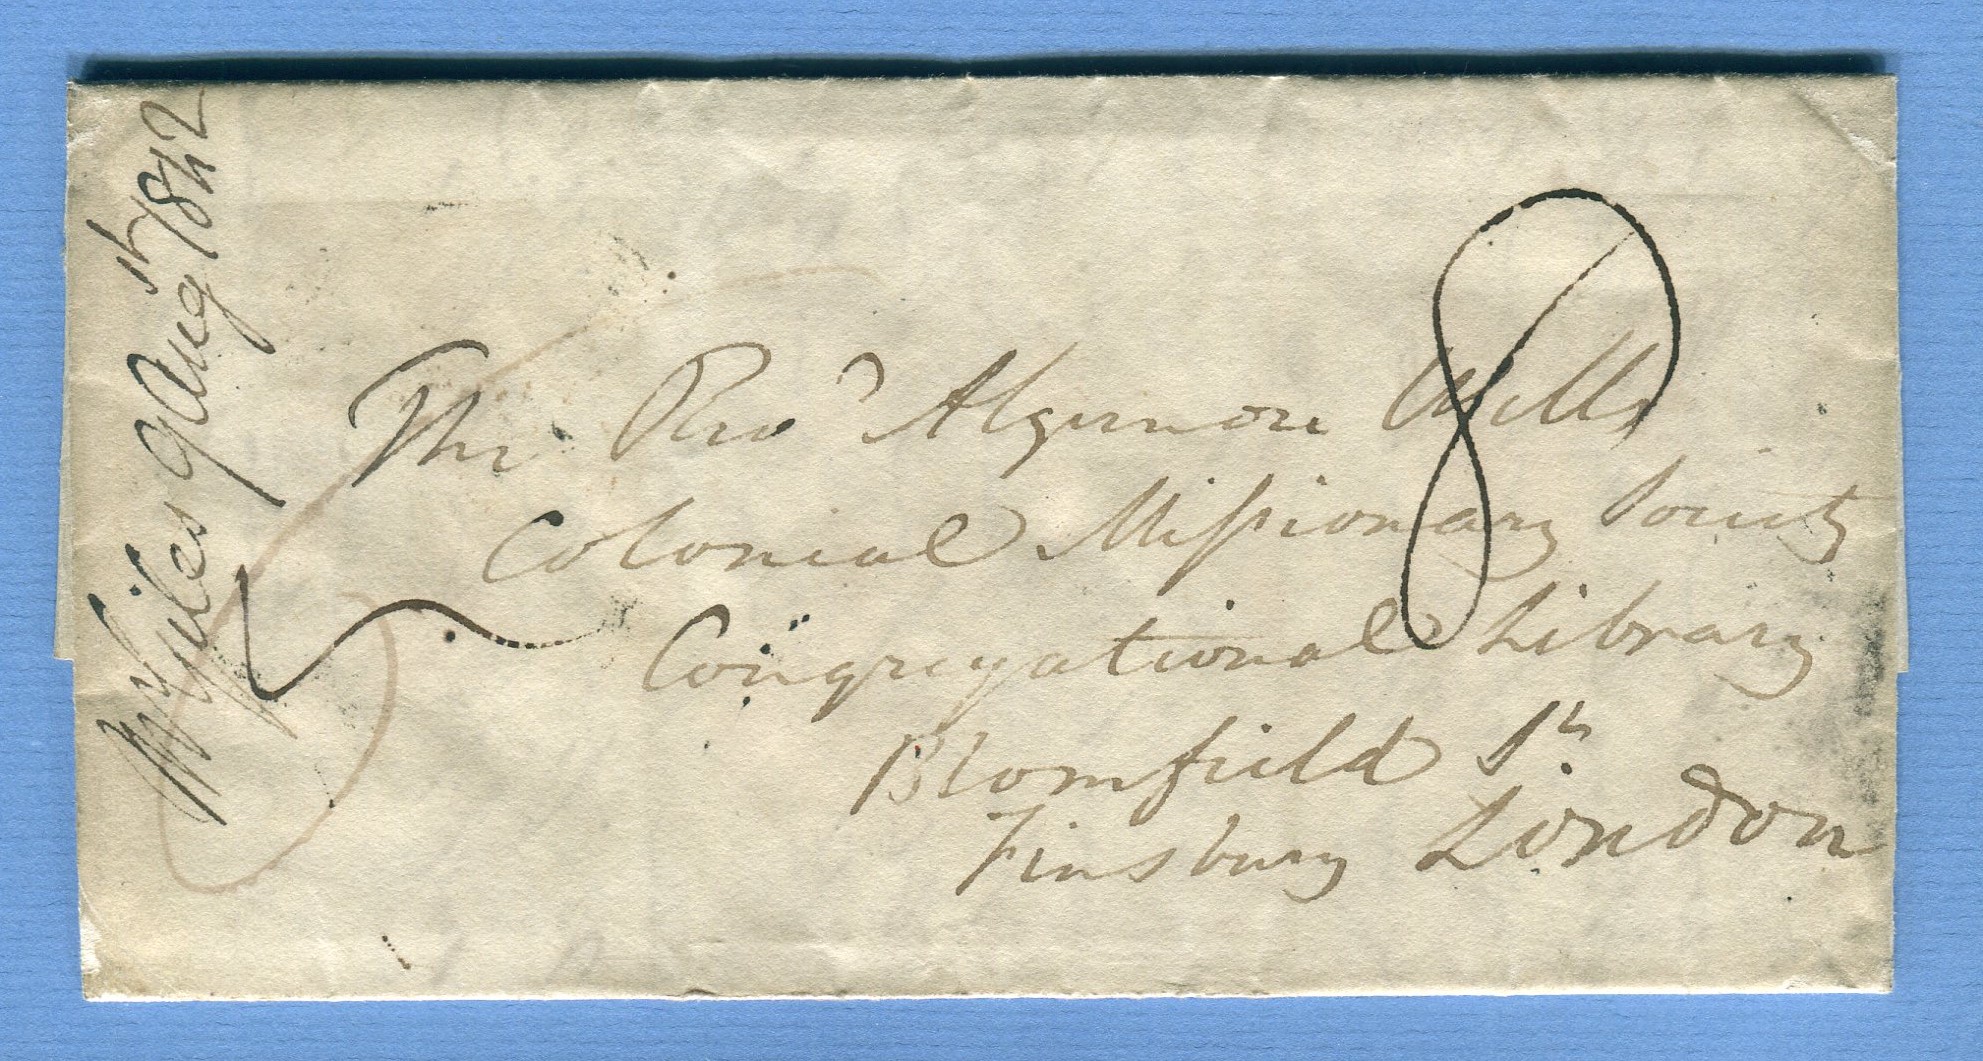 W Giles 9 Augth 1842
The Revd Algernon Wells
Colonial Missionary Society
Congregational Library
Blomfield St.
Finsbury London
8